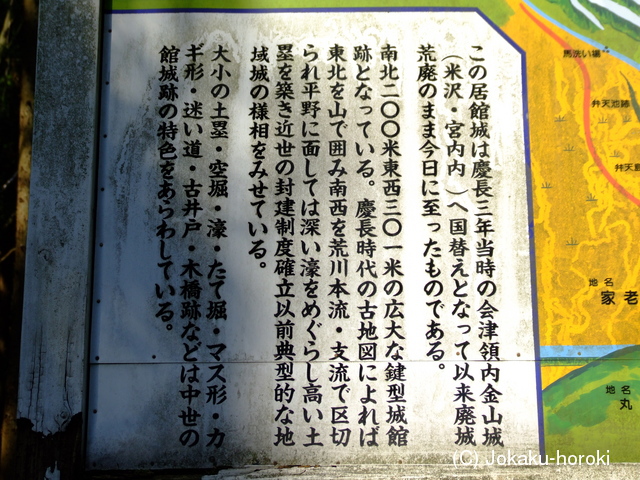 この居館城は慶長三年当時の会津領内金山城
（米沢・宮内内　）へ国替えとなって以来廃城
荒廃のまま今日に至ったものである。
南北二〇〇米東西三〇一米の広大な鍵型城館
跡となっている。慶長時代の古地図によれば
東北を山で囲み南西を荒川本流・支流で区切
られ平野に面しては深い濠をめぐらし高い土
塁を築き近世の封建制度確立以前典型的な地
域城の様相をみせている。
大小の土塁・空堀・濠・たて堀・マス形・カ
ギ形・迷い道・古井戸・木橋跡などは中世の
館城跡の特色をあらわしている。
馬洗い場
弁天池跡
弁天
地名
家老
地名
丸
(C) Jokaku-horoki